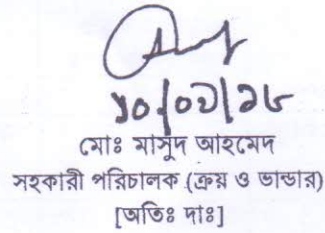 ১০/০১/১৮
মোঃ মাসুদ আহমেদ
সহকারী পরিচালক (ক্রয় ও ভান্ডার)
[অতিঃ দাঃ]